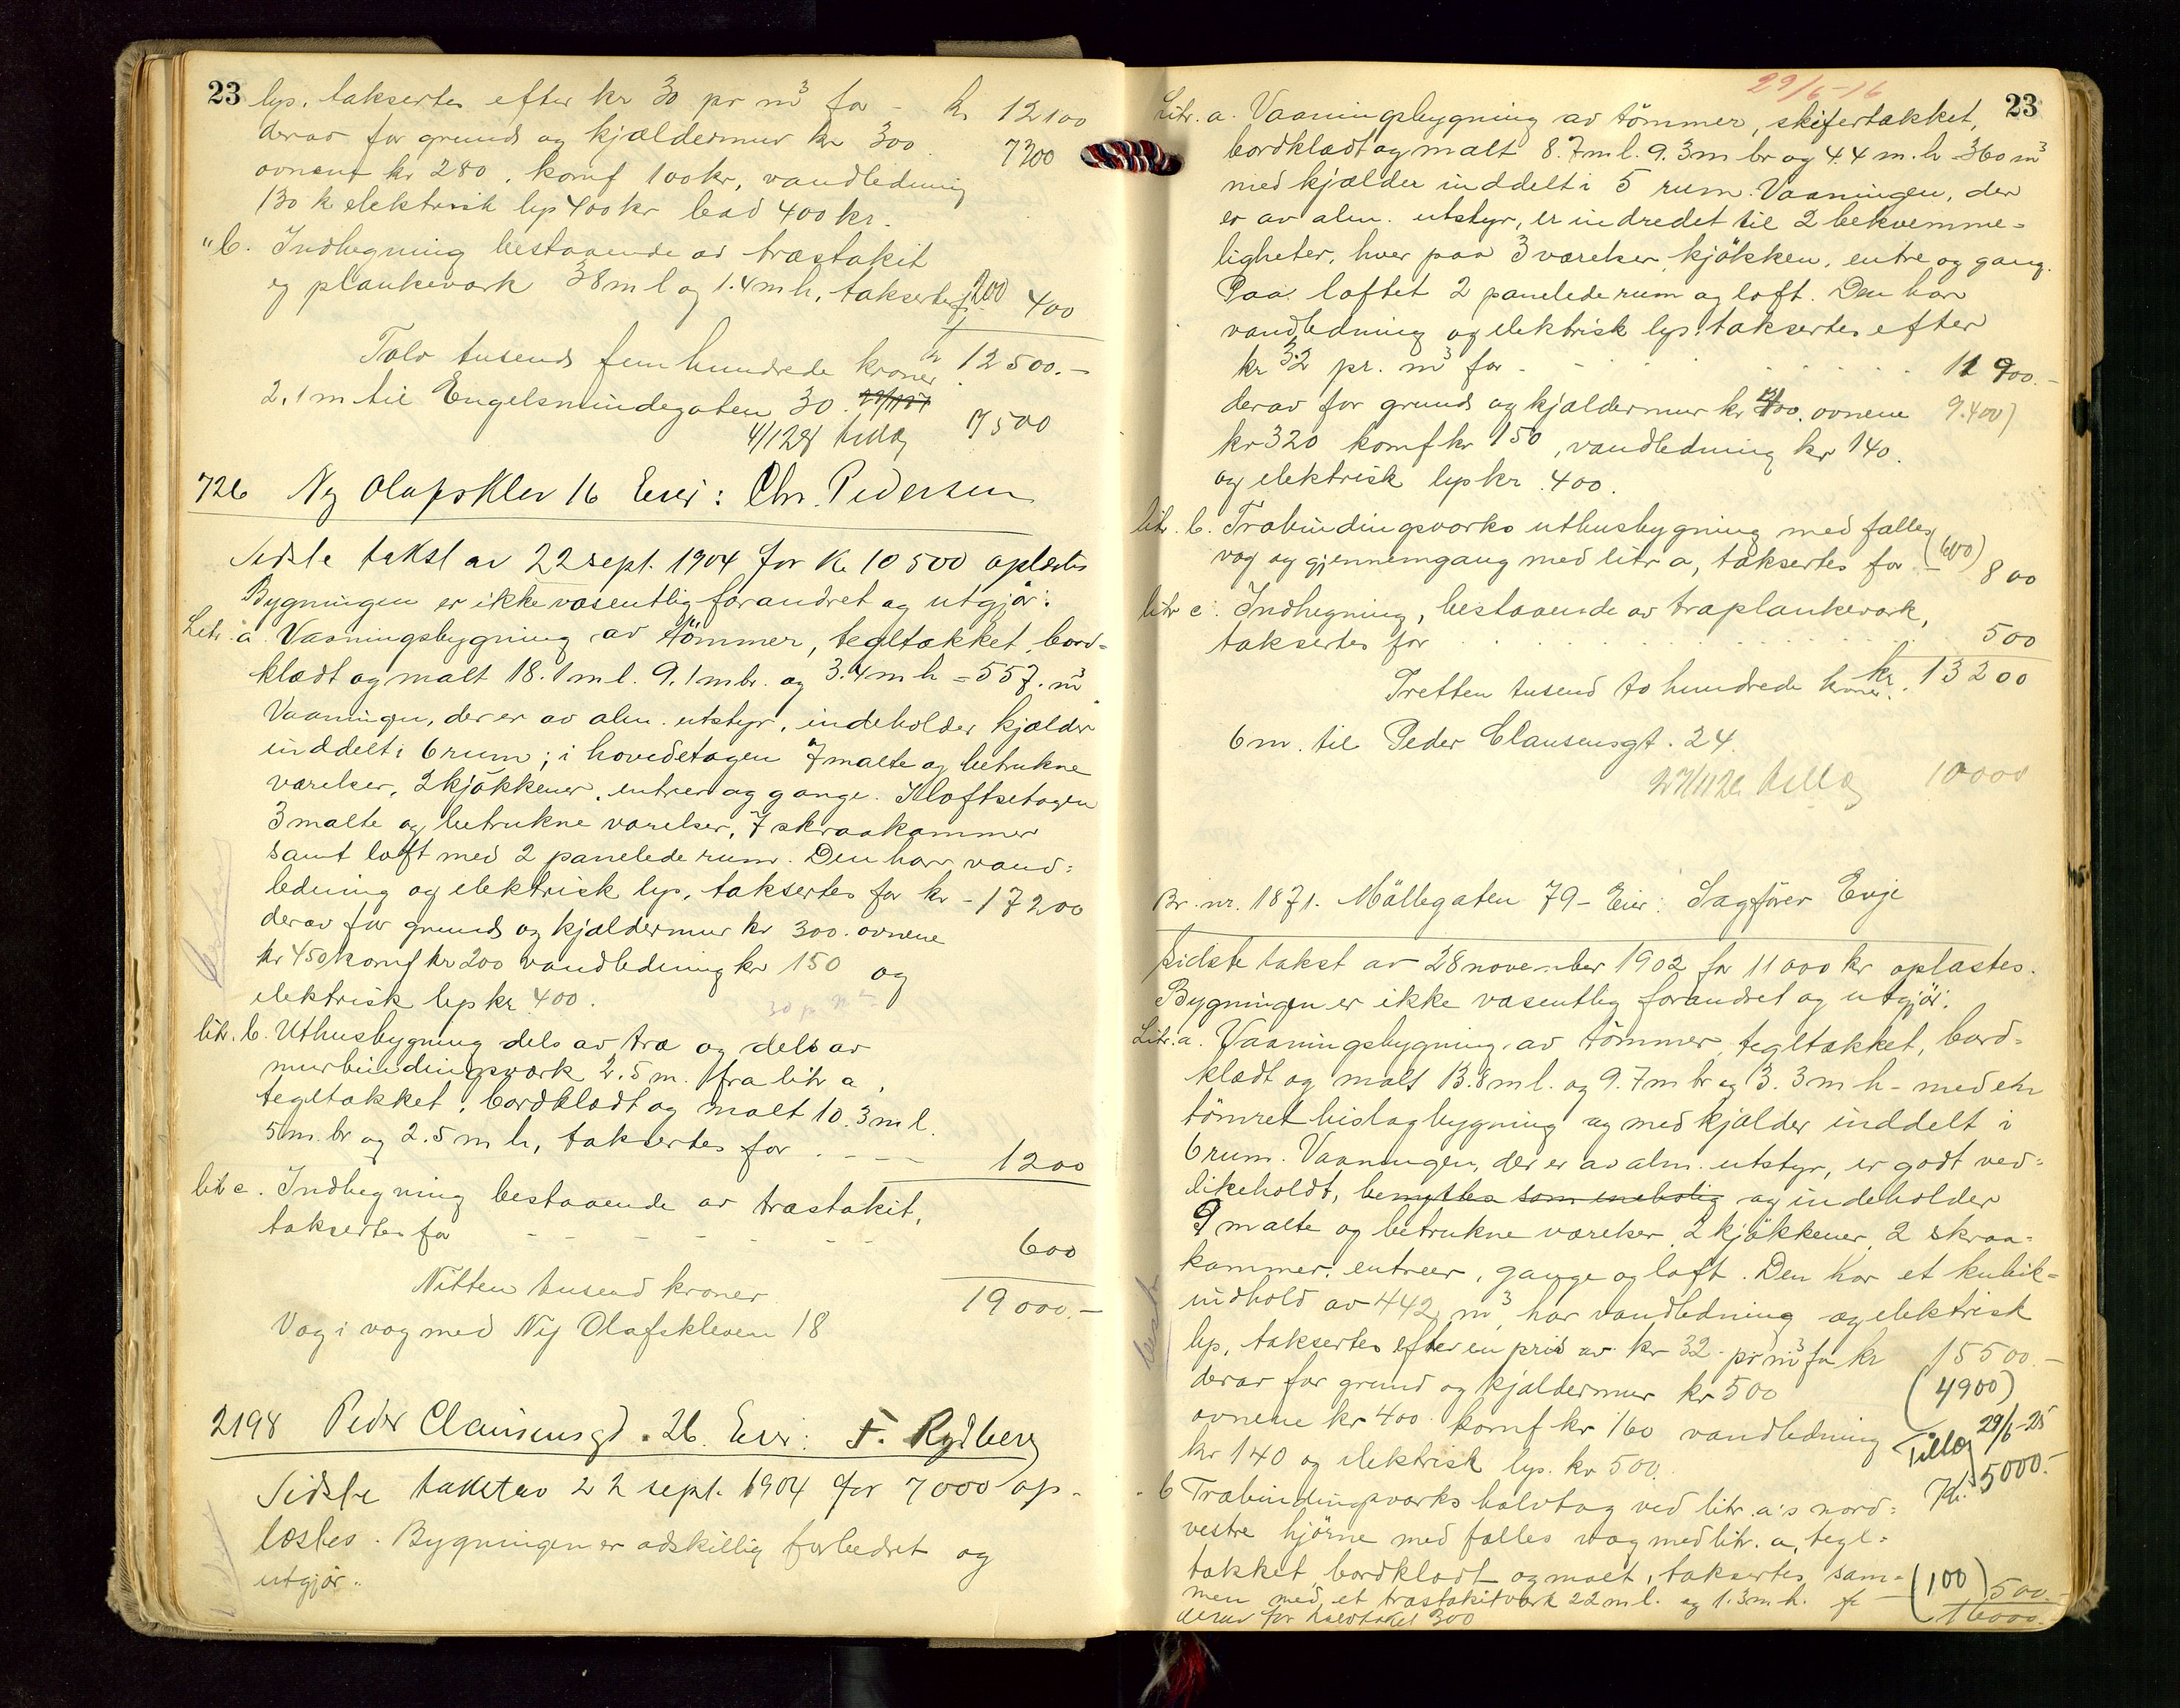 23 lys, taksertes efter kr 30 pr m³ for - kr 12100
derav for grund og kjældermur kr 300. 7200
ovnene kr 280, komf 100 kr, vandledning
130 kr elektrisk lys 400 kr bad 400 kr.
" b. Indhegning bestaaende av træstakit
og plankeværk 38 m l og 1.4 m h, taksertes for 200 400
Tolv tusend fem hundrede kroner kr 12500.-
2.1 m til Engelsmindegaten 30.
4/128 tillæg 17500
726 Ny Olafsklev 16 Eier: Chr. Pedersen
Sidste takst av 22 sept. 1904 for Kr 10500 oplæstes
Bygningen er ikke væsentlig forandret og utgjør:
Litr. a. Vaaningsbygning av tömmer, tegltækket, bord-
klædt og malt 18.1 m l. 9.1 m br. og 3.4 m h = 557. m³
Vaaningen, der er av alm. utstyr, indeholder kjælder
inddelt i 6 rum; i hovedetagen 7 malte og betrukne
værelser, 2 kjøkkener, entreer og gange. I loftsetagen
3 malte og betrukne værelser, 7 skraakammer
samt loft med 2 panelede rum. Den har vand-
ledning og elektrisk lys, taksertes for kr - 17200
derav for grund og kjældermur kr 300. ovnene
kr 450 komf kr 200 vandledning kr 150 og
elektrisk lys kr 400.
30 p m³
litr. b. Uthusbygning dels av træ og dels av
murbindingsværk 2.5 m. fra litr a,
tegltækket, bordklædt og malt 10.3 m l.
5 m. br og 2.5 m h, taksertes for . - - - 1200
litr c. Indhegning bestaaende av træstakit,
taksertes for - - - - - - - 600
Nitten tusend kroner 19000.-
Væg i væg med Ny Olafskleven 18
2198 Peder Clausensgd. 26. Eier: F. Rydberg
Sidste takst av 22 sept. 1904 for 7000 op-
læstes. Bygningen er adskillig forbedret og
utgjør:
29/6-16
23
Litr. a. Vaaningsbygning av tömmer, skifertækket,
bordklædt og malt 8.7 m l. 9.3 m br og 4.4 m. h = 360 m³
med kjælder inddelt i 5 rum. Vaaningen, der
er av alm. utstyr, er indredet til 2 bekvemme-
ligheter, hver paa 3 værelser, kjökken, entre og gang.
Paa loftet 2 panelede rum og loft. Den har
vandledning og elektrisk lys, taksertes efter
kr 32 pr. m³ for - - . . . . . . 11900.-
derav for grund og kjældermur kr 400. ovnene 9.400)
kr 320 komf kr 150, vandledning kr 140.
og elektrisk lys kr. 400.
litr. b. Træbindingsværks uthusbygning med fælles
væg og gjennemgang med litr a, taksertes for - (600) 800
litr c. Indhegning, bestaaende av træplankeværk,
taksertes for . . . . . . . . . 500
Tretten tusend to hundrede kroner. kr. 13200
6 m. til Peder Clausensgt. 24.
tillæg 10000
Br. nr. 1871. Möllegaten 79 - Eier: Sagförer Evje
Sidste takst av 28 november 1902 for 11000 kr oplæstes.
Bygningen er ikke væsentlig forandret og utgjör:
Litr. a. Vaaningsbygning av tömmer, tegltækket, bord-
klædt og malt 13.8 m l. og 9.7 m br og 3.3 m h - med en
tömret bislagbygning og med kjælder inddelt i
6 rum. Vaaningen, der er av alm. utstyr, er godt ved-
likeholdt, benyttes som enebolig og indeholder
9 malte og betrukne værelser, 2 kjökkener, 2 skraa-
kammer, entreer, gange og loft. Den har et kubik-
indhold av 442 m³, har vandledning og elektrisk
lys, taksertes efter en pris av kr 32 pr m³ for kr 15500.-
derav for grund og kjældermur kr 500 (4900)
ovnene kr 400. komf kr 160 vandledning Tillæg 29/6-25
kr 140 og elektrisk lys. kr 500. Kr. 5000.-
- b Træbindingsværks halvtag ved litr. a's nord-
vestre hjörne med fælles væg med litr. a, tegl-
tækket, bordklædt og malt, taksertes sam-
men med et træstakitværk 22 m l. og 1.3 m h. for - (100) 500.-
derav for halvtaket 300 16000.